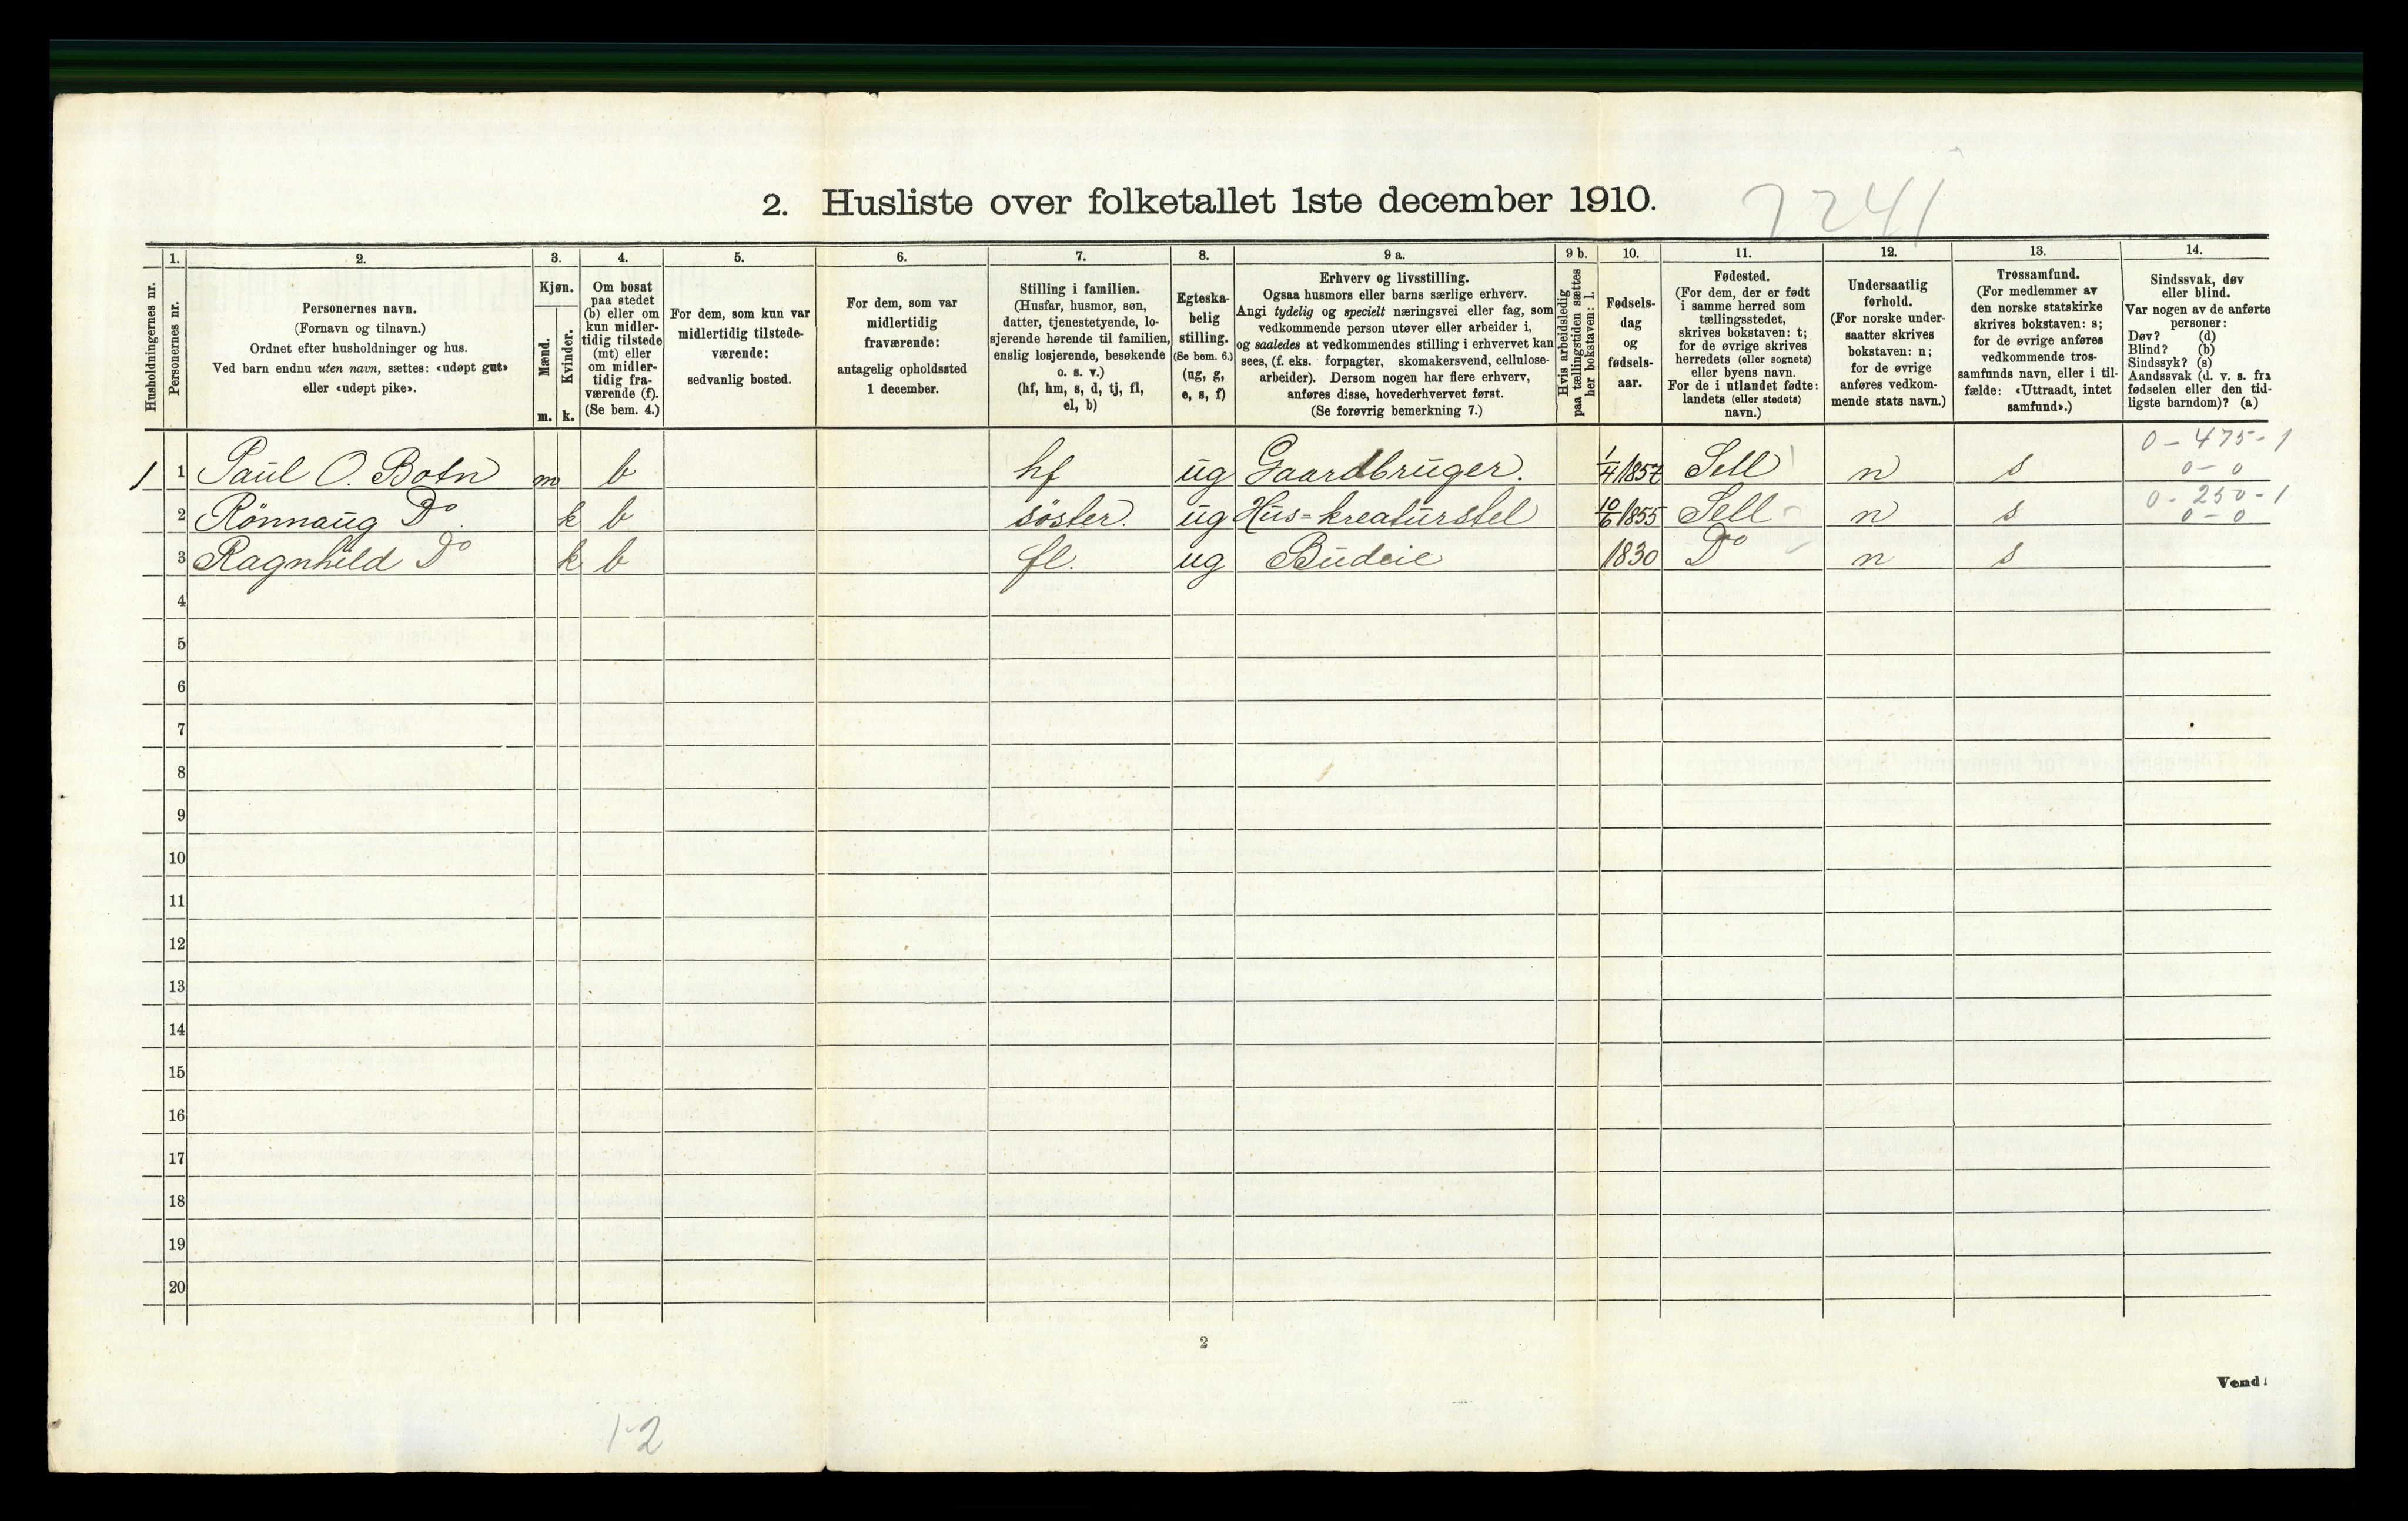 2. Husliste over folketallet 1ste december 1910.
7241
Husholdningernes nr.
1.
Personernes nr.
2.
Personernes navn.
(Fornavn og tilnavn.)
Ordnet efter husholdninger og hus.
Ved barn endnu uten navn, sættes: «udøpt gut»
eller «udøpt pike».
3.
Kjøn.
Mænd.
Kvinder.
m. k.
4.
Om bosat
paa stedet
(b) eller om
kun midler-
tidig tilstede
(mt) eller
om midler-
tidig fra-
værende (f).
(Se bem. 4.)
5.
For dem, som kun var
midlertidig tilstede-
værende:
sedvanlig bosted.
6.
For dem, som var
midlertidig
fraværende:
antagelig opholdssted
1 december.
7.
Stilling i familien.
(Husfar, husmor, søn,
datter, tjenestetyende, lo-
sjerende hørende til familien,
enslig losjerende, besøkende
o. s. v.)
(hf, hm, s, d, tj, fl,
el, b)
8.
Egteska-
belig
stilling.
(Se bem. 6.)
(ug, g,
e, s, f)
9 a.
Erhverv og livsstilling.
Ogsaa husmors eller barns særlige erhverv.
Angi tydelig og specielt næringsvei eller fag, som
vedkommende person utøver eller arbeider i,
og saaledes at vedkommendes stilling i erhvervet kan
sees, (f. eks. forpagter, skomakersvend, cellulose-
arbeider). Dersom nogen har flere erhverv,
anføres disse, hovederhvervet først.
(Se forøvrig bemerkning 7.)
9 b.
Hvis arbeidsledig
paa tællingstiden sættes
her bokstaven: l.
10.
Fødsels-
dag
og
fødsels-
aar.
11.
Fødested.
(For dem, der er født
i samme herred som
tællingsstedet,
skrives bokstaven: t;
for de øvrige skrives
herredets (eller sognets)
eller byens navn.
For de i utlandet fødte:
landets (eller stedets)
navn.)
12.
Undersaatlig
forhold.
(For norske under-
saatter skrives
bokstaven: n;
for de øvrige
anføres vedkom-
mende stats navn.)
13.
Trossamfund.
(For medlemmer av
den norske statskirke
skrives bokstaven: s;
for de øvrige anføres
vedkommende tros-
samfunds navn, eller i til-
fælde: «Uttraadt, intet
samfund».)
14.
Sindssvak, døv
eller blind.
Var nogen av de anførte
personer:
Døv? (d)
Blind? (b)
Sindssyk? (s)
Aandssvak (d. v. s. fra
fødselen eller den tid-
ligste barndom)? (a)
0 - 475 - 1
1 1 Paul O. Botn m b hf ug Gaardbruger. 1/4 1857 Sell n s 0 - 0
0 - 250 - 1
2 Rönnaug Do. k b söster. ug Hus=kreaturstel 10/6 1855 Sell n s 0 - 0
3 Ragnhild Do k b fl. ug Budeie 1830 Do n s
4
5
6
7
8
9
10
11
12
13
14
15
16
17
18
19
20
2
Vend!
1-2